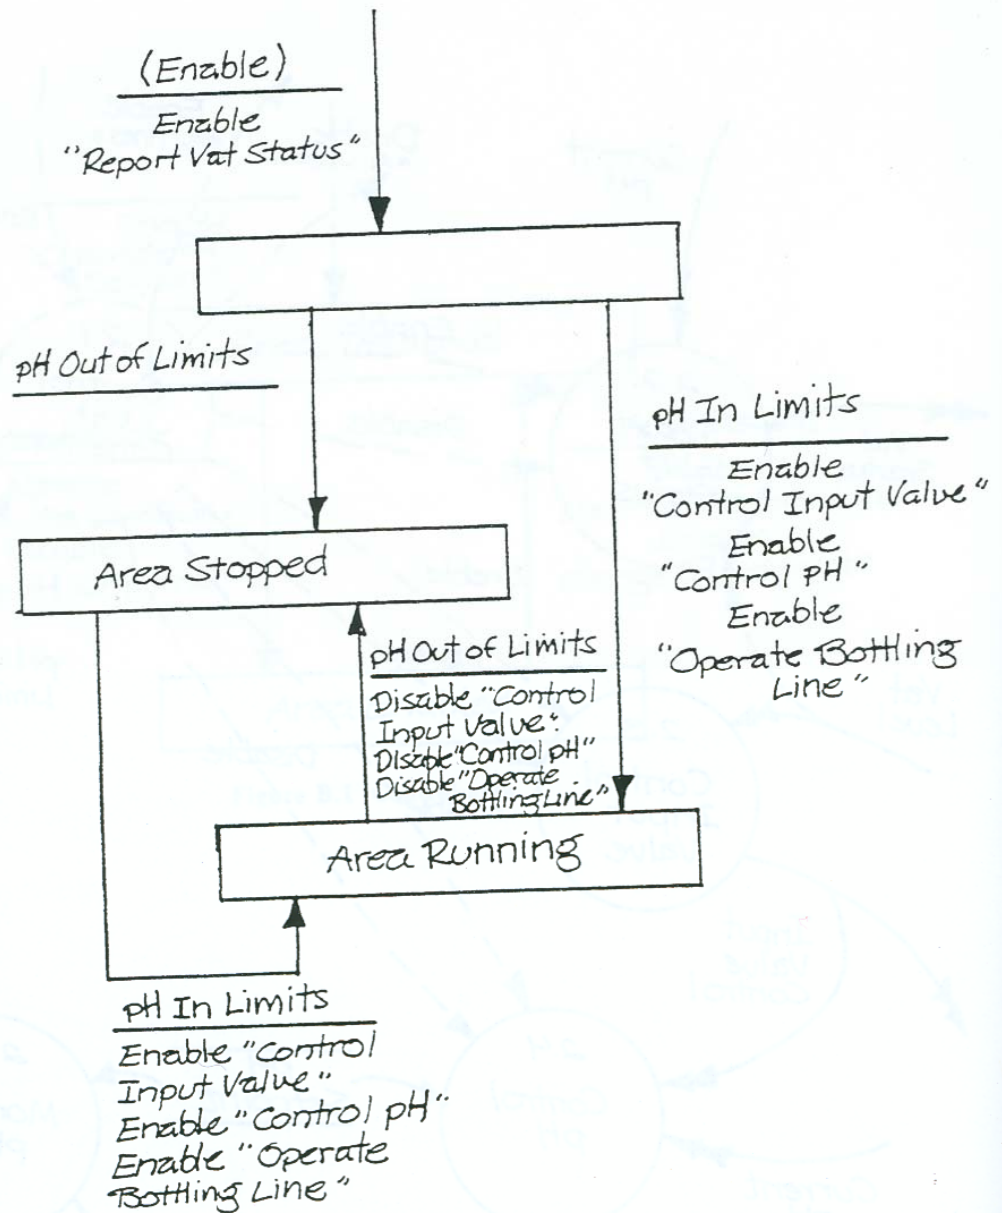 (Enable)
Enable
"Report Vat Status"
pH Out of Limits
pH In Limits
Enable
"Control Input Value"
Enable
"Control pH"
Enable
"Operate Bottling
Line"
Area Stopped
pH Out of Limits
Disable "Control
Input Value"
Disable "Control pH"
Disable "Operate
Bottling Line"
Area Running
pH In Limits
Enable "Control
Input Value"
Enable "Control pH"
Enable "Operate
Bottling Line"